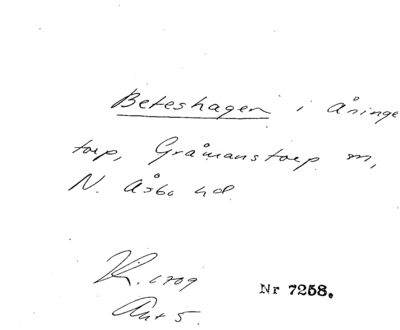 Beteshagen i Åninge
torp, Gråmanstorp m,
N. Åsbo hd.
K. 1709
Akt 5.
Nr 7258.